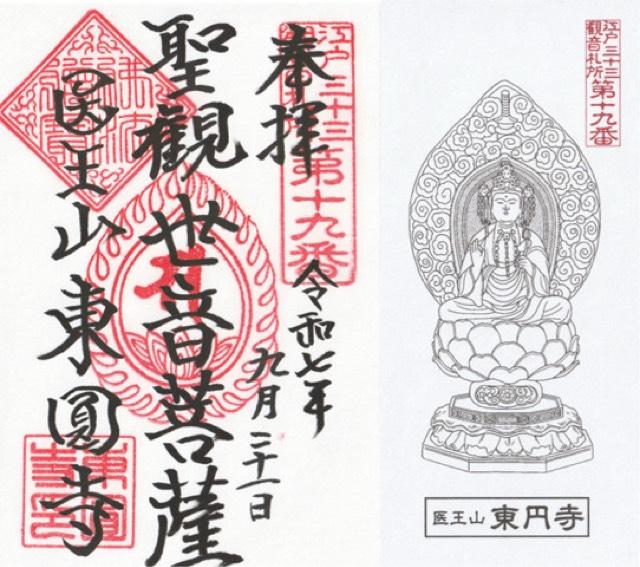 奉拝
江戸三十三
第十九番
令和七年
九月二十一日
聖観世音菩薩
医王山東圓寺
江戸三十三
観音札所
第十九番
医王山 東円寺